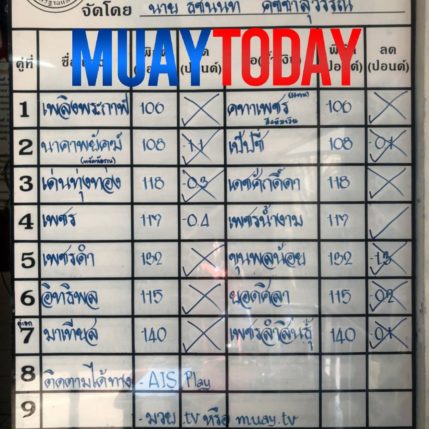 จัดโดย : นาย ธชนนท คชชาสุวรรณ
MUAYTODAY
คู่ที่
(ปอนด์) (ปอนด์) ลด (ปอนด์)
1 เพลิงพระกาฬ 106 คทาเพชร 106
2 นาคาพยัคฆ์ 108 -1.1 เป๊ปซี่ 108 -0.1
3 เด่นทุ่งทอง 118 -0.3 เดชศักดิ์ดา 118
4 เพชร 117 -0.4 เพชรน้ำงาม 117
5 เพชรดำ 132 ขุนพลน้อย 132 -1.3
6 อิทธิพล 115 ยอดศิลา 115 -0.2
7 มาเทียส 140 เพชรลำสินธุ์ 140 -0.1
8 ติดตามได้ทาง - AIS Play
9 - มวย.tv หรือ muay.tv